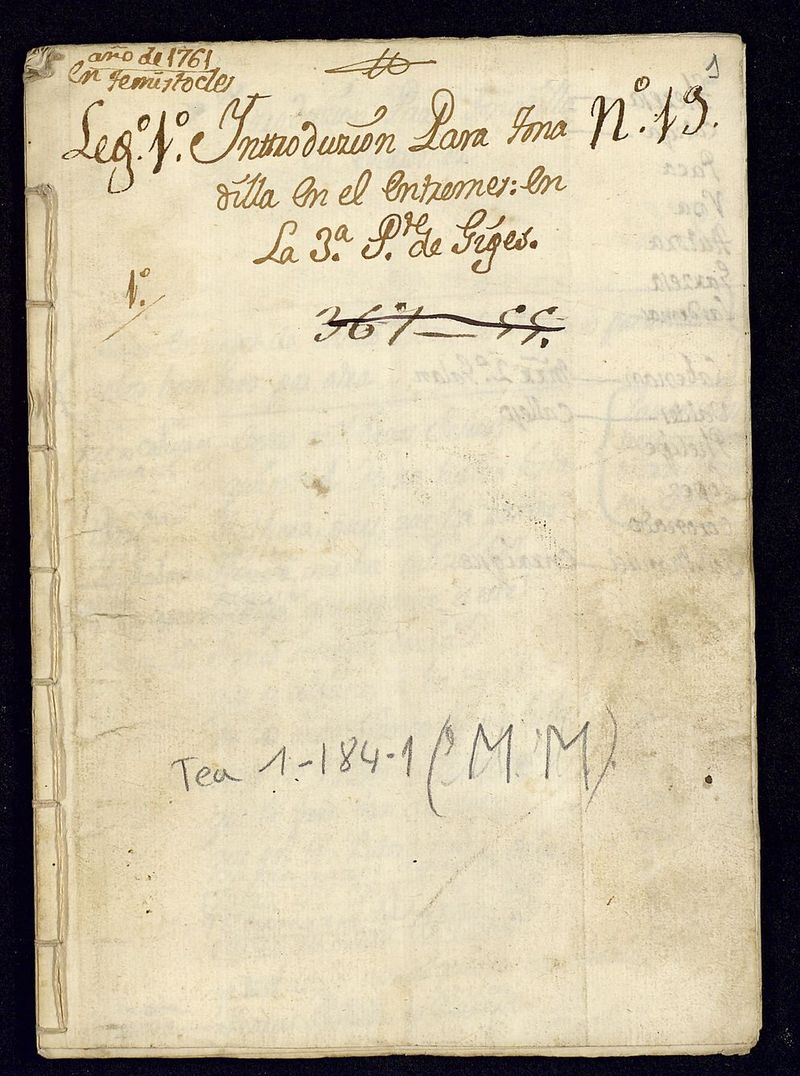 año de 1761
en Temistocles
1
Leg.º 1.º Inttroduzion Para tona N.º 19.
dilla en el entremes: en
La 3.ª P.te de Giges.
1.º
367
Tea 1.-184-1 (M.M)